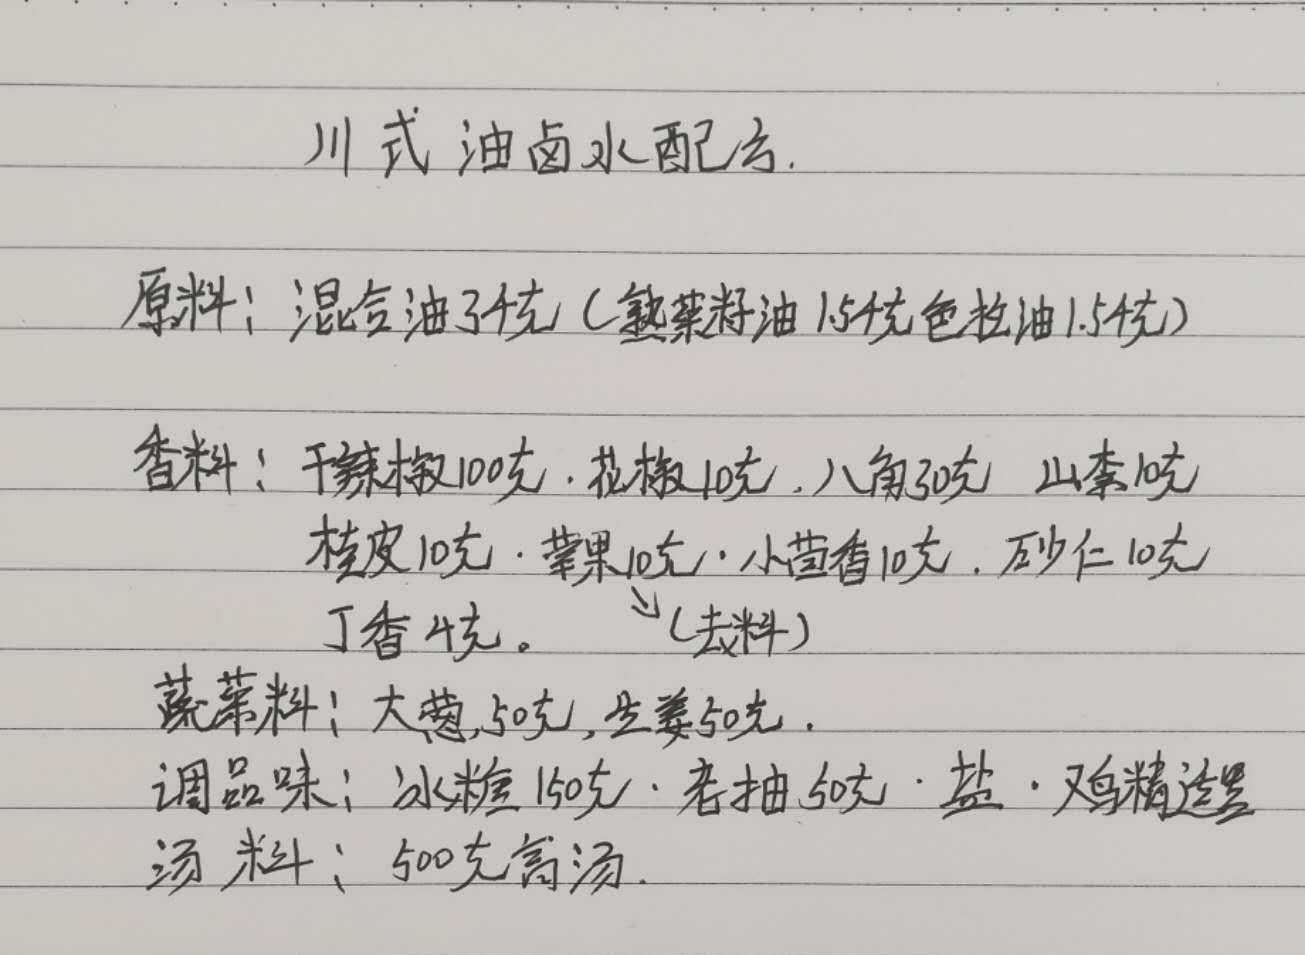 川式油卤水配方.
原料: 混合油3千克(熟菜籽油1.5千克色拉油1.5千克)
香料: 干辣椒100克.花椒10克.八角30克 山柰10克
桂皮10克.草果10克.小茴香10克.砂仁10克
丁香4克。 ↘(去料)
蔬菜料: 大葱,50克,生姜50克.
调品味: 冰糖150克.老抽50克.盐.鸡精适量
汤料: 500克高汤.